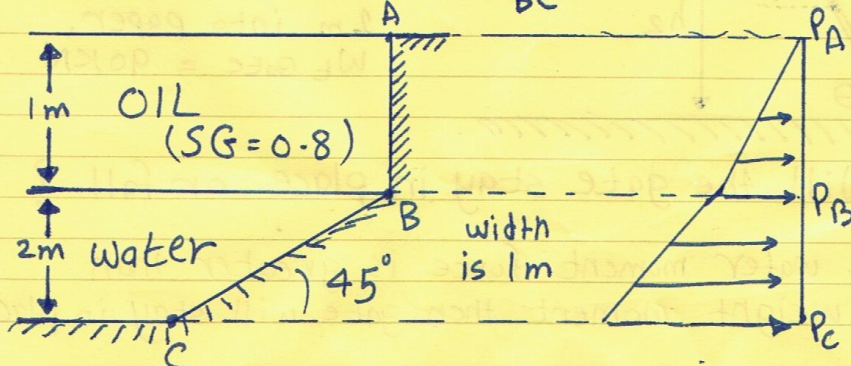 BC
A
PA
1m OIL
(SG=0.8)
B
PB
2m water
width
is 1m
45°
C
PC